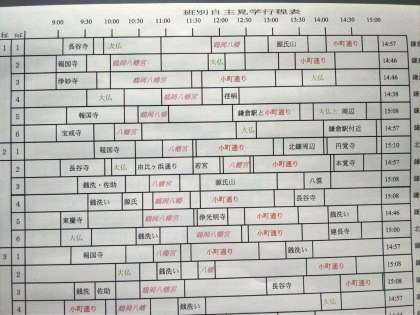 班別自主見学行程表
9:00 9:30 10:00 10:30 11:00 11:30 12:00 12:30 13:00 13:30 14:00 14:30 15:00
1 1 長谷寺 大仏 鶴岡八幡 源氏山 小町通り 14:57
2 報国寺 鶴岡八幡宮 大仏 小町通り 14:46
3 浄妙寺 鶴岡八幡宮 小町通り 大仏 14:46
4 大仏 鶴岡八幡宮 荏柄 14:38
5 報国寺 鶴岡八幡 鎌倉駅と小町通り 大仏と周辺 15:08
6 宝戒寺 八幡宮 大仏 鎌倉駅付近 14:57
2 1 報国寺 八幡宮 小町通り 北鎌周辺 円覚寺 15:10
2 長谷寺 大仏 由比ヶ浜通り 若宮 八幡宮 小町通り 本覚寺 14:57
3 銭洗・佐助 八幡宮 源氏山 八雲 15:08
4 銭洗い 源氏 鶴岡八幡 小町通り 長谷寺 15:08
5 東慶寺 鶴岡八幡宮 浄光明寺 小町通り 銭洗い 14:46
6 大仏 銭洗い 鶴岡八幡宮 小町通り 建長寺 15:00
3 1 報国寺 八幡宮 小町通り 銭洗い 14:57
2 大仏 銭洗い 八幡 小町通り 15:08
3 銭洗 佐助 鶴岡八幡宮 長谷寺 小町通り 15:08
4 小町通り 鶴岡八幡 銭洗い 大仏 15:00